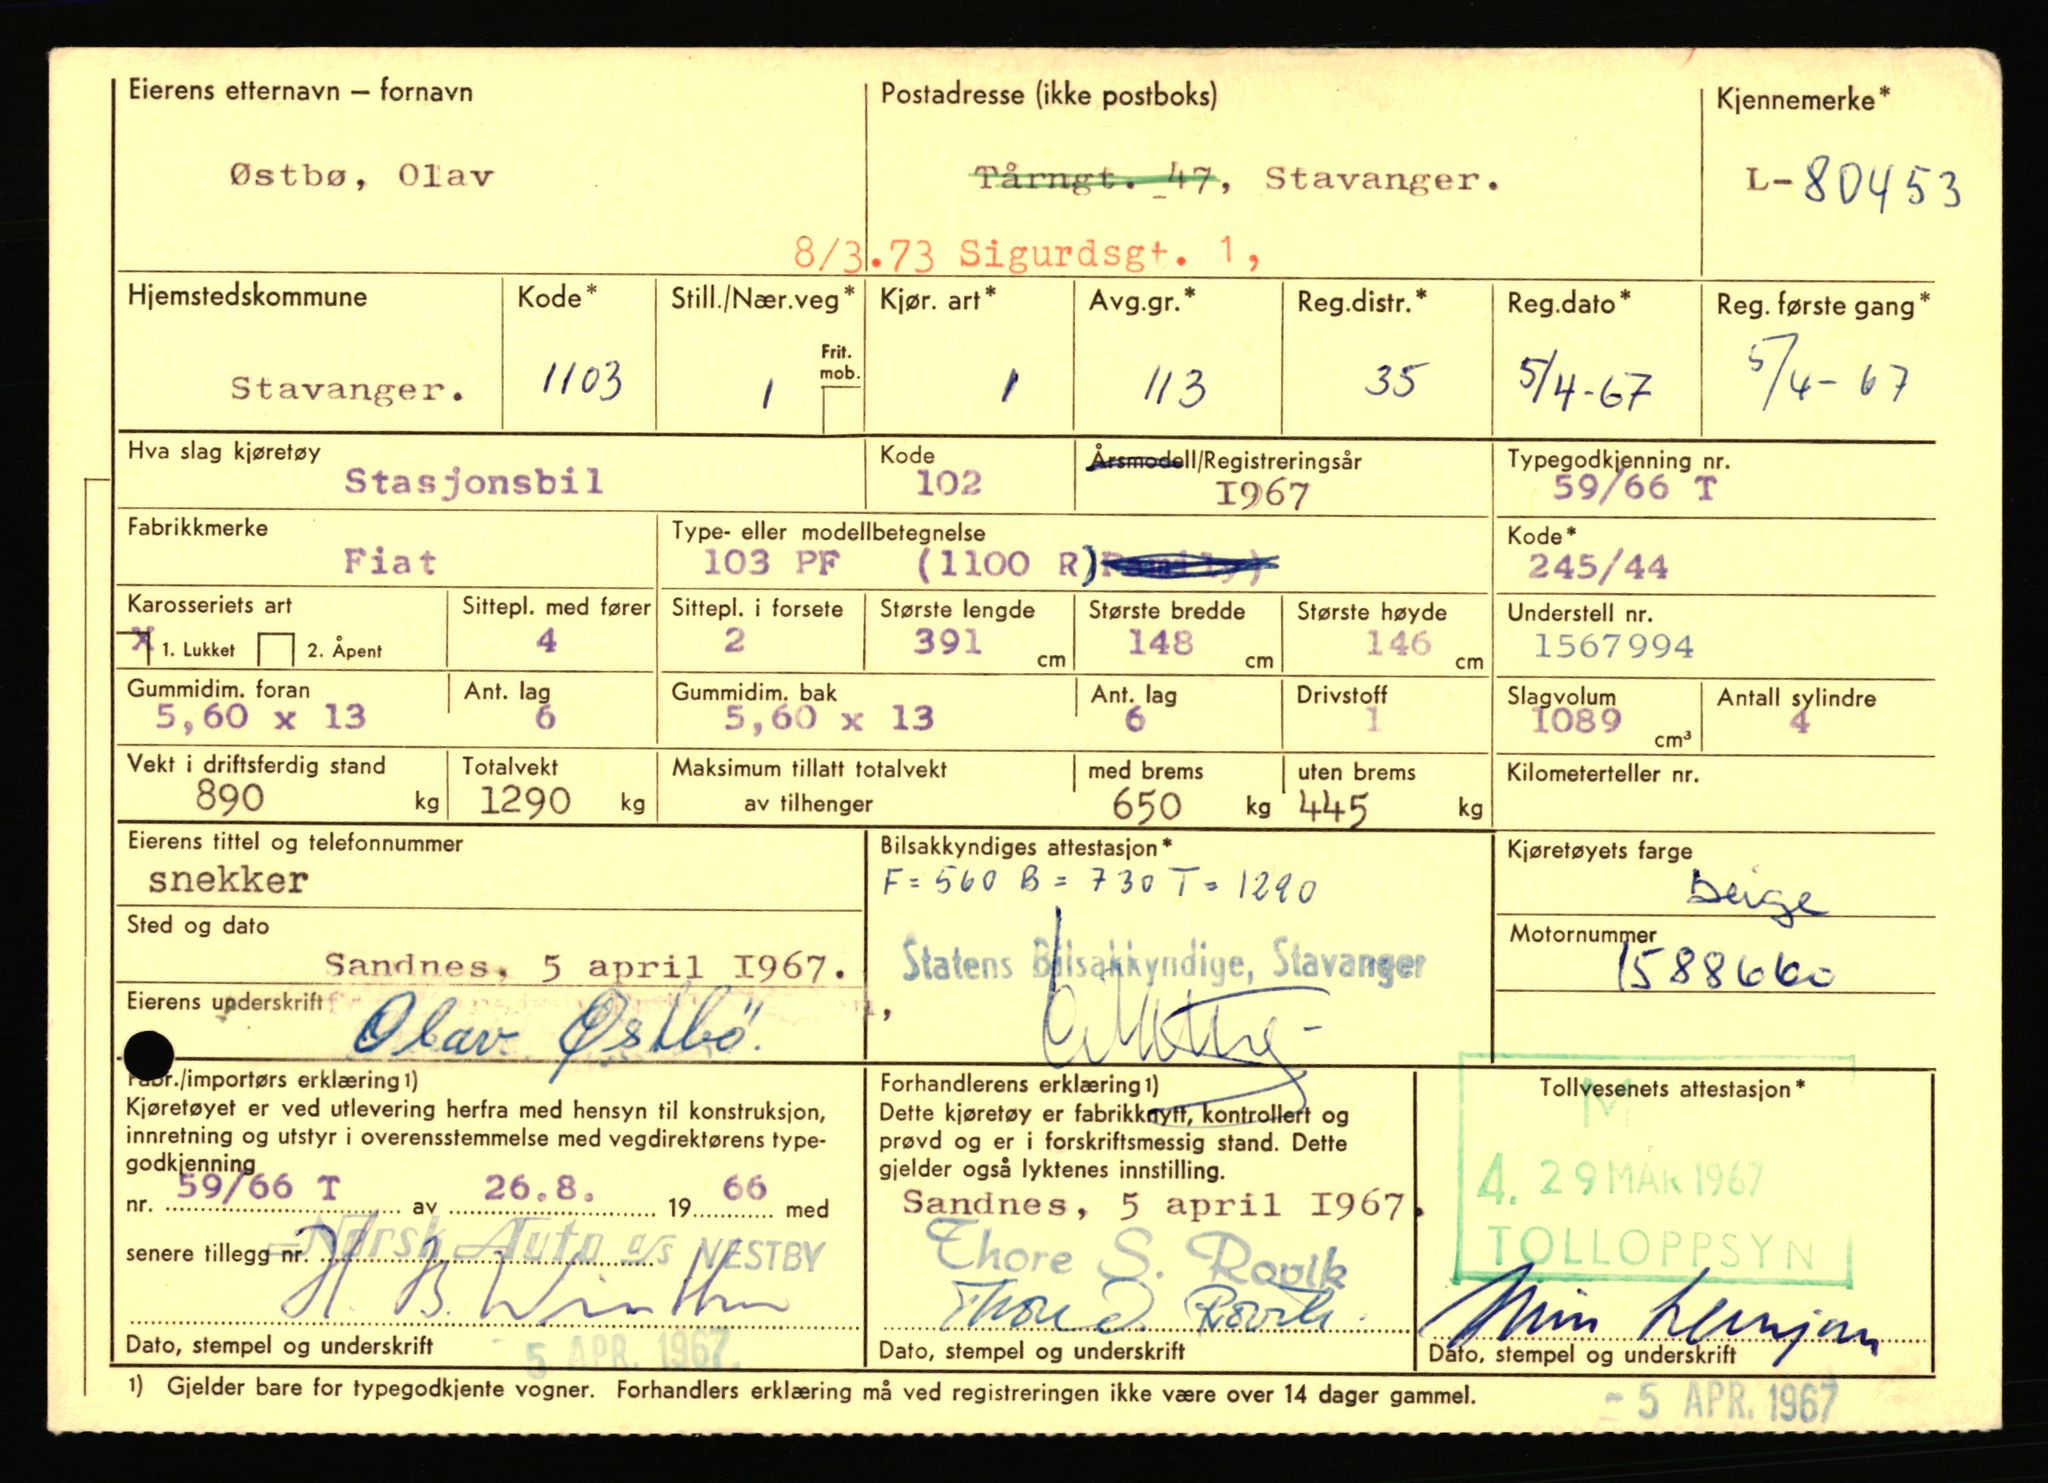 Eierens etternavn — fornavn
Postadresse (ikke postboks)
Kjennemerke*
Østbø, Olav
Tårngt. 47, Stavanger.
L-80453
8/3.73 Sigurdsgt. 1,
Hjemstedskommune
Kode*
Still./Nær.veg*
Kjør. art*
Avg.gr.*
Reg.distr.*
Reg.dato*
Reg. første gang*
Frit. mob.
Stavanger.
1103
1
1
113
35
5/4-67
5/4-67
Hva slag kjøretøy
Stasjonsbil
Kode
102
Årsmodell/Registreringsår
1967
Typegodkjenning nr.
59/66 T
Fabrikkmerke
Fiat
Type- eller modellbetegnelse
103 PF (1100 R) Family)
Kode*
245/44
Karosseriets art
x 1. Lukket 2. Åpent
Sittepl. med fører
4
Sittepl. i forsete
2
Største lengde
391 cm
Største bredde
148 cm
Største høyde
146 cm
Understell nr.
1567994
Gummidim. foran
5,60 x 13
Ant. lag
6
Gummidim. bak
5,60 x 13
Ant. lag
6
Drivstoff
1
Slagvolum
1089 cm³
Antall sylindre
4
Vekt i driftsferdig stand
890 kg
Totalvekt
1290 kg
Maksimum tillatt totalvekt
av tilhenger
med brems
650 kg
uten brems
445 kg
Kilometerteller nr.
Eierens tittel og telefonnummer
snekker
Bilsakkyndiges attestasjon*
F = 560 B = 730 T = 1290
Kjøretøyets farge
beige
Sted og dato
Sandnes, 5 april 1967.
Statens Bilsakkyndige, Stavanger
Motornummer
1588660
Eierens underskrift
Olav Østbö.
Fabr./importørs erklæring 1)
Kjøretøyet er ved utlevering herfra med hensyn til konstruksjon,
innretning og utstyr i overensstemmelse med vegdirektørens type-
godkjenning
nr. 59/66 T av 26.8. 19 66 med
senere tillegg nr.
Norsk Auto a/s NESTBY
Dato, stempel og underskrift
5 APR. 1967.
Forhandlerens erklæring 1)
Dette kjøretøy er fabrikknytt, kontrollert og
prøvd og er i forskriftsmessig stand. Dette
gjelder også lyktenes innstilling.
Sandnes, 5 april 1967.
Thore S. Rovik
Thore S. Rovik
Dato, stempel og underskrift
Tollvesenets attestasjon*
M
4. 29 MAR 1967
TOLLOPPSYN
Dato, stempel og underskrift
1) Gjelder bare for typegodkjente vogner. Forhandlers erklæring må ved registreringen ikke være over 14 dager gammel.
- 5 APR. 1967